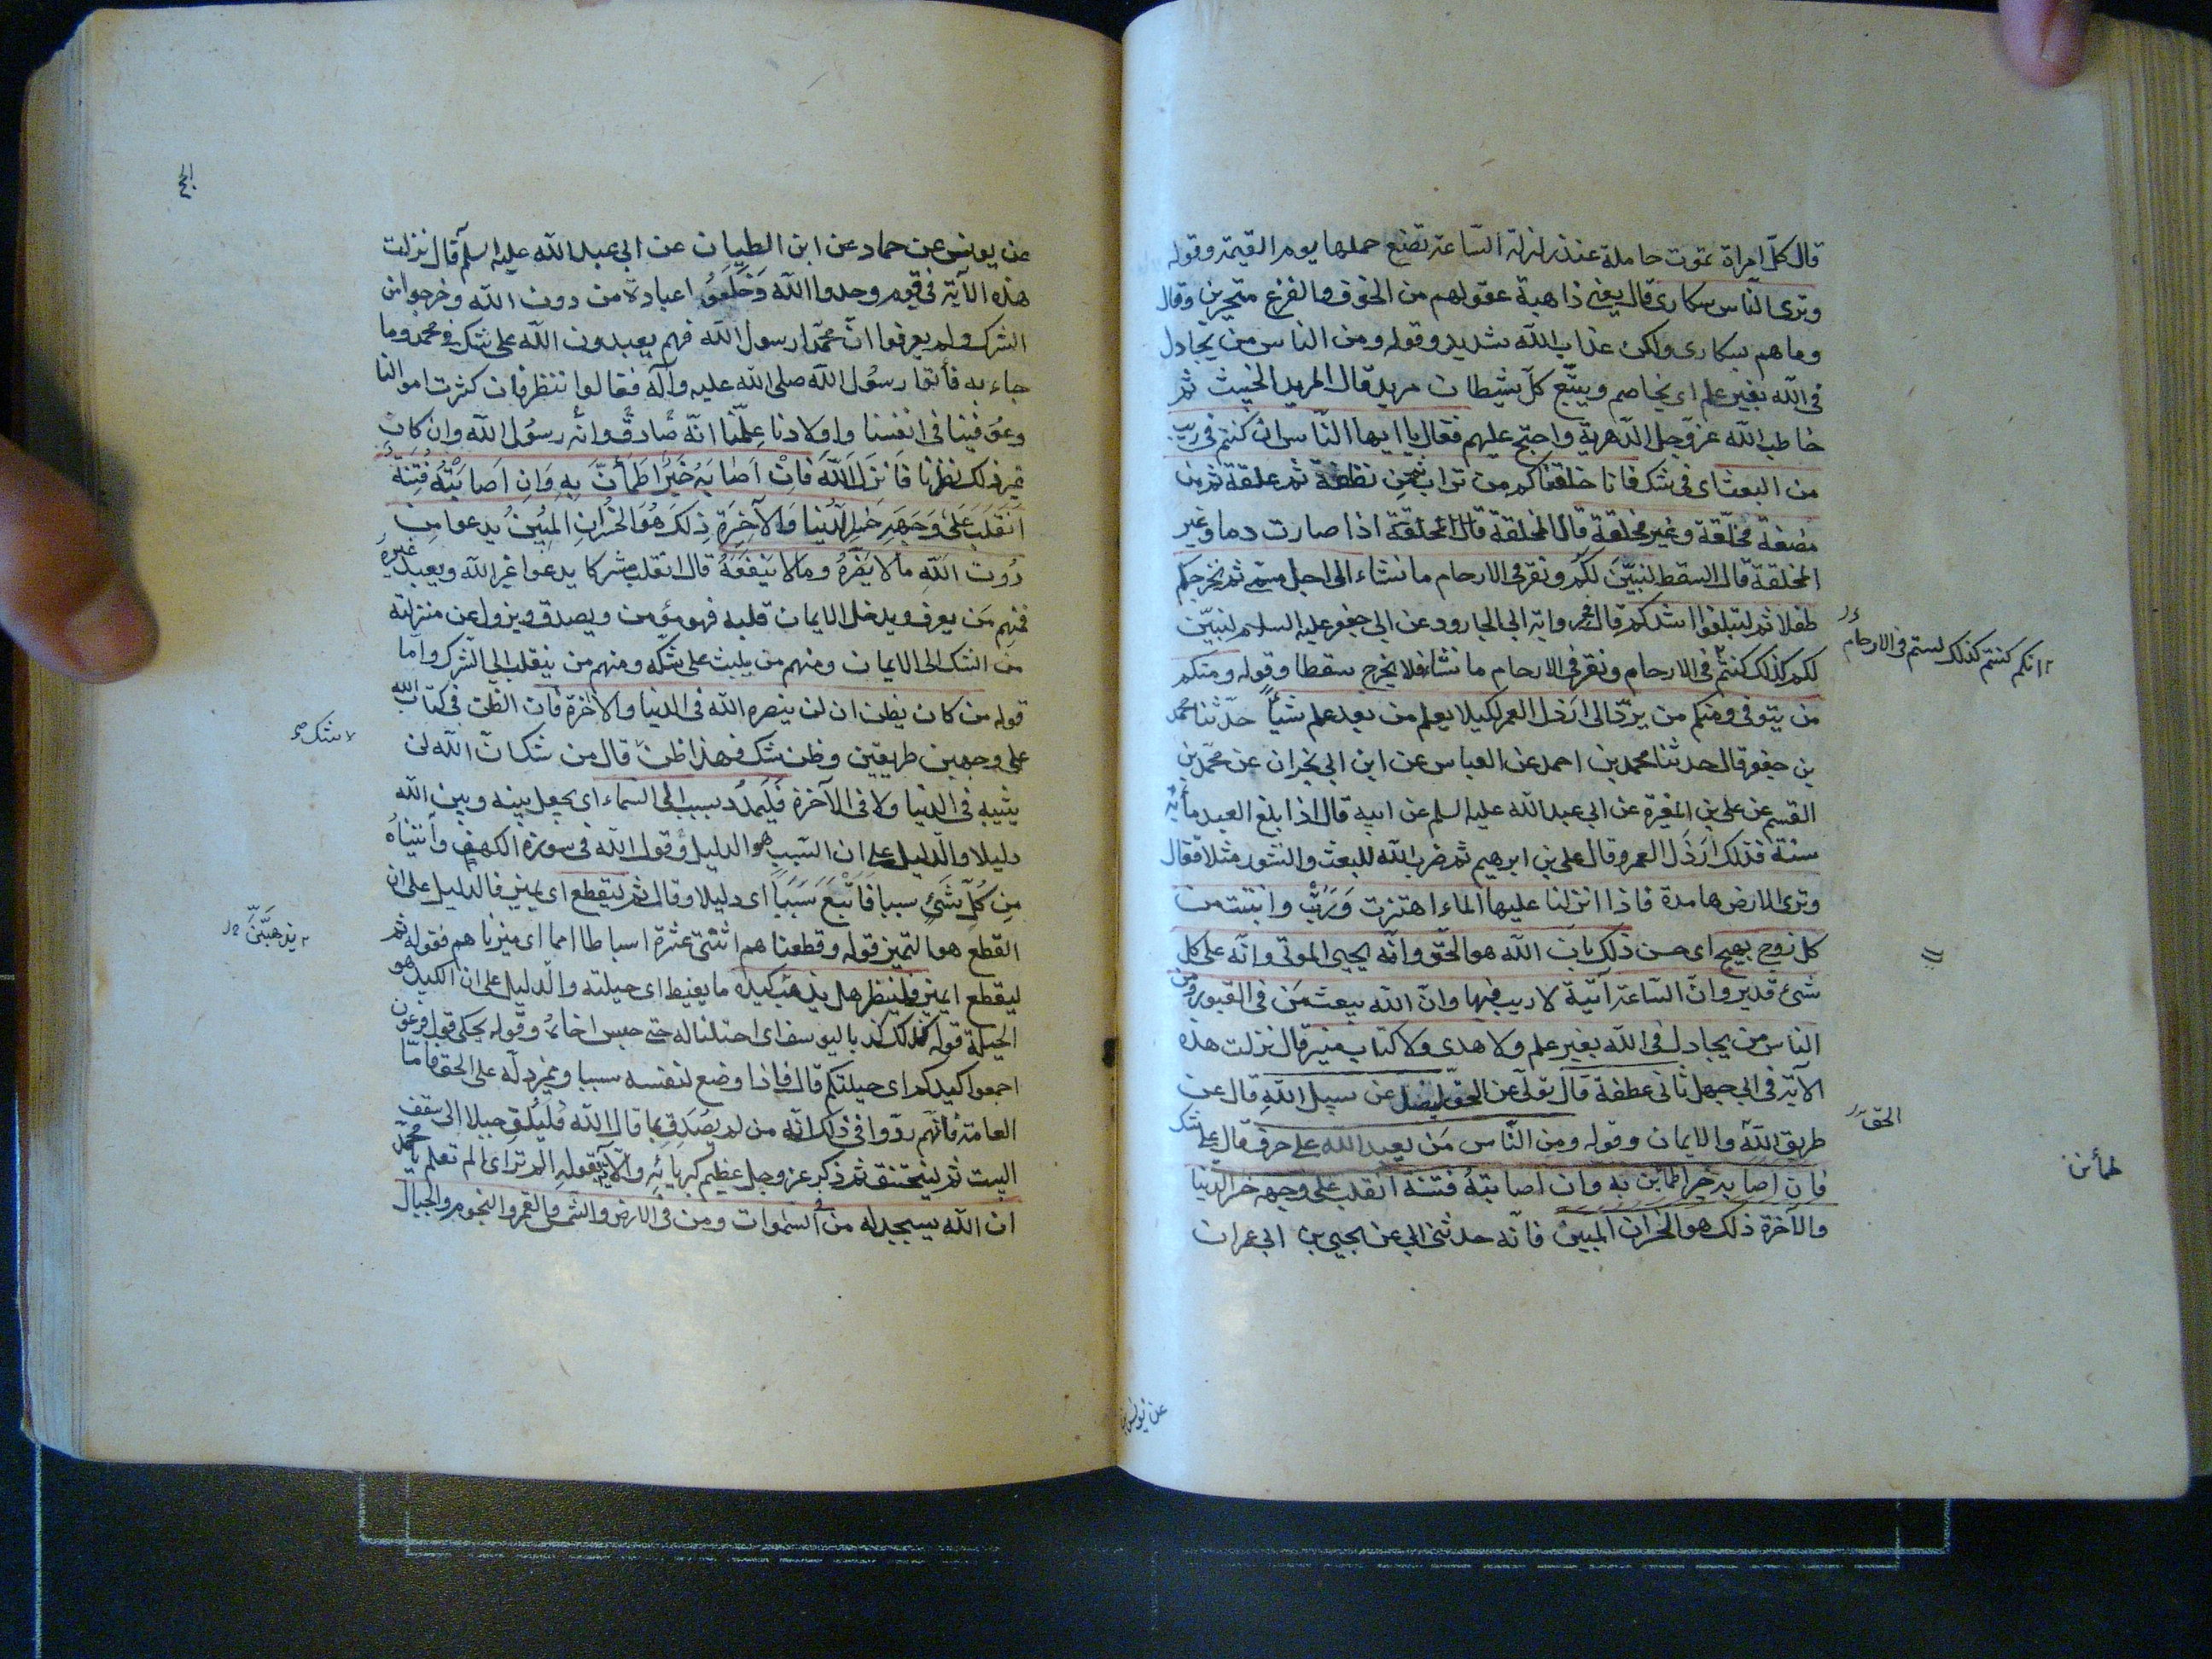 قال كلّ امراة تموت حاملة عند زلزلة السّاعة تضع حملها يوم القيمة وقوله
وترى النّاس سكارى قال يعنى ذاهبة عقولهم من الخوف والفزع متحيرين وقال
وما هم بسكارى ولكن عذاب الله شديد وقوله ومن الناس من يجادل
فى الله بغير علم اى يخاصم ويتّبع كلّ شيطان مريد قال المريد الخبيث ثم
خاطب الله عزّ وجل الدّهرية واحتج عليهم فقال يا ايها النّاس ان كنتم فى ريب
من البعث اى فى شك فانا خلقناكم من تراب ثم من نطفة ثم علقة ثم من
مضغة مخلّقة وغير مخلقة قال المخلقة قال المخلقة اذا صارت دما وغير
المخلقة قال السقط لنبيّن لكم ونقر فى الارحام ما نشاء الى اجل مسمّى ثم نخرجكم
طفلا ثم لتبلغوا اشدكم قال فى رواية ابى الجارود عن ابى جعفر عليه السلم لنبيّن
لكم كذلك كنتم فى الارحام ونقر فى الارحام ما نشاء فلا يخرج سقطا وقوله ومنكم
من يتوفى ومنكم من يردّ الى ارذل العمر لكيلا يعلم من بعد علم شيئاً حدّثنا محمد
بن جعفر قال حدثنا محمد بن احمد عن العباس عن ابن ابى نجران عن محمّد بن
القسم عن على بن المغيرة عن ابى عبد الله عليه السلم عن ابيه قال اذا بلغ العبد مأئة
سنة فذلك ارذل العمر وقال على بن ابرهيم ثم ضرب الله للبعث والنشور مثلاً فقال
وترى الارض هامدة فاذا انزلنا عليها الماء اهتزت وربت وانبتت من
كل زوج بهيج اى حسن ذلك بان الله هو الحقّ وانّه يحيى الموتى وانّه على كل
شئ قدير وانّ السّاعة آتية لا ريب فيها وانّ الله يبعث من فى القبور ومن
الناس من يجادل فى الله بغير علم ولا هدى ولا كتاب منير قال نزلت هذه
الآية فى ابى جهل ثانى عطفه قال تولّى عن الحقّ ليضل عن سبيل الله قال عن
طريق الله والايمان وقوله ومن النّاس من يعبد الله على حرف قال على شك
فان اصابه خير اطمأن به وان اصابته فتنة انقلب على وجهه خسر الدنيا
والآخرة ذلك هو الخسران المبين فانّه حدثنى ابى عن يحيى بن ابى عمران
انكم كنتم كذلك لستم فى الارحام
الحقّ
اطمأن
عن يونس
الحج
عن يونس عن حماد عن ابن الطيان عن ابى عبد الله عليه السلم قال نزلت
هذه الآية فى قوم وحدوا الله وخلعوا عبادة من دون الله وخرجوا من
الشرك ولم يعرفوا انّ محمّدا رسول الله فهم يعبدون الله على شك فى محمد وما
جاء به فأتوا رسول الله صلى الله عليه وآله فقالوا ننتظر فان كثرت اموالنا
وعوفينا فى انفسنا واولادنا علمنا انّه صادق وانّه رسول الله وان كان
غير ذلك نظرنا فانزل الله فان اصابه خير اطمأنّ به وان اصابته فتنة
انقلب على وجهه خسر الدّنيا والآخرة ذلك هو الخسران المبين يدعوا من
دون الله ما لا يضره وما لا ينفعه قال انقلب مشركا يدعوا غير الله ويعبد غيره
فمنهم من يعرف ويدخل الايمان قلبه فهو مؤمن ويصدق ويزول عن منزلته
من الشك الى الايمان ومنهم من يلبث على شكّه ومنهم من ينقلب الى الشرك وامّا
قوله من كان يظن ان لن ينصره الله فى الدنيا والآخرة فان الظن فى كتاب الله
على وجهين ظن يقين وظن شك فهذا ظن قال من شك انّ الله لن
يثيبه فى الدنيا ولا فى الآخرة فليمدد بسبب الى السّماء اى يجعل بينه وبين الله
دليلا والدليل على ان السّبب هو الدليل وقول الله فى سورة الكهف وآتيناه
من كلّ شئ سببا فاتبع سببا اى دليلا وقال ثم ليقطع اى يميز فالدليل على ان
القطع هو التميز قوله وقطعناهم اثنتى عشرة اسباطا امما اى ميزناهم فقوله ثم
ليقطع اى يميز فلينظر هل يذهبن كيده ما يغيظ اى حيلته والدليل على ان الكيد هو
الحيلة قوله كذلك كدنا ليوسف اى احتلنا له حتى حبس اخاه وقوله يحكى قول فرعون
اجمعوا كيدكم اى حيلتكم قال فاذا وضع لنفسه سببا وميز دلّه على الحق فامّا
العامة فانّهم رووا فى ذلك انّه من لم يصدق بما قال الله فليلق حبلا الى سقف
البيت ثم ليختنق ثم ذكر عز وجل عظيم كبريائه وآلائه فقوله الم تر اى الم تعلم يا محمّد
ان الله يسجد له من فى السموات ومن فى الارض والشّمس والقمر والنجوم والجبال
شك
يذهبنّ